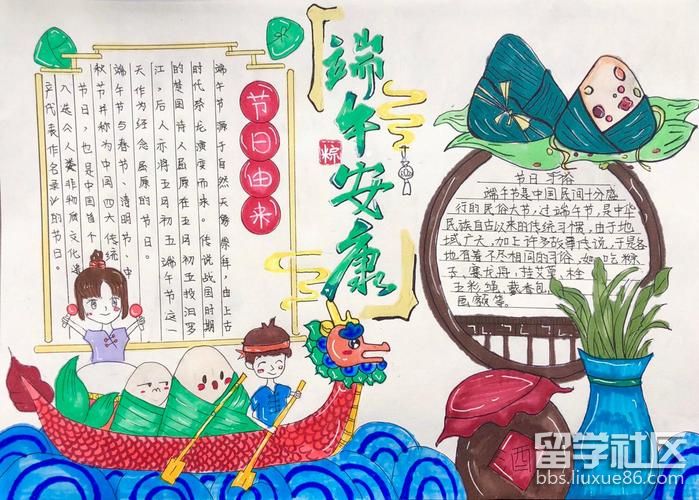 端午安康
粽
节日由来
端午节源于自然天象崇拜,由上古
时代祭龙演变而来。传说战国时期
的楚国诗人屈原在五月初五投汨罗
江,后人亦将五月初五端午节这一
天作为纪念屈原的节日。
端午节与春节、清明节、中
秋节并称为中国四大传统
节日,也是中国首个
入选《人类非物质文化遗
产代表作名录》的节日。
节日习俗
端午节是中国民间十分盛
行的民俗大节,过端午节,是中华
民族自古以来的传统习惯,由于地
域广大,加上许多故事传说,于是各
也有着不尽相同的习俗,如:吃粽
子、赛龙舟、挂艾草、拴
五彩绳、戴香包、
画额等。
酉
留学社区
bbs.liuxue86.com